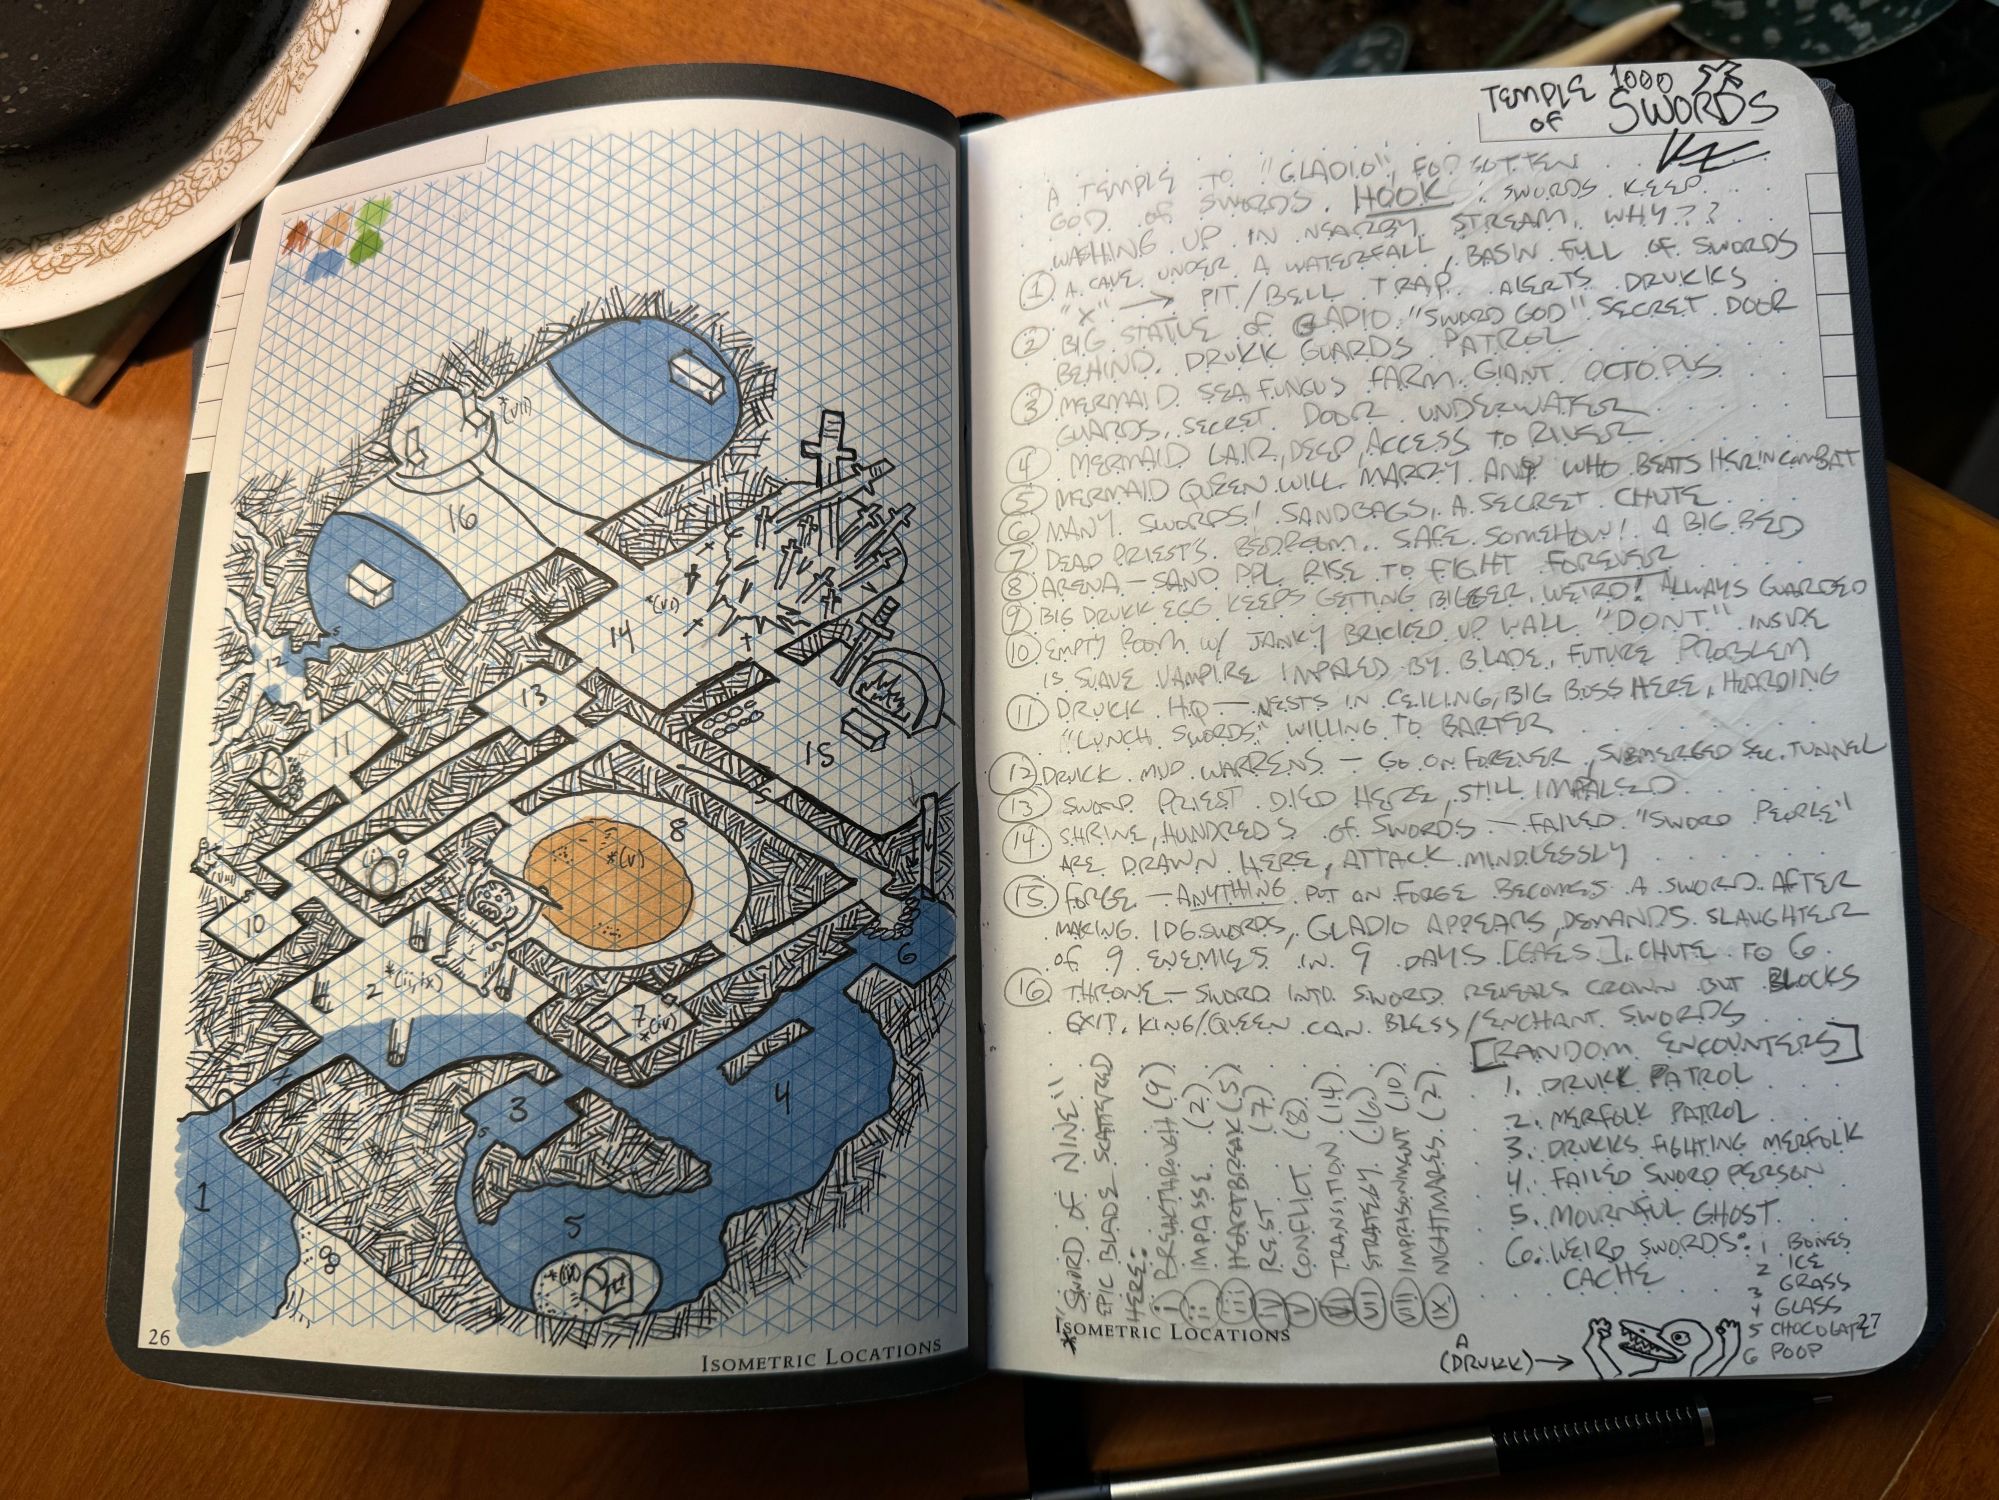 16
*(VII)
14
*(VI)
12
13
11
15
8
*(V)
9
(i)
(VIII)
10
2 *(ii, ix)
7
*(iv)
6
3
S
4
1
5
*(iii)
26
ISOMETRIC LOCATIONS
TEMPLE OF 1000 SWORDS
A TEMPLE TO "GLADIO", FORGOTTEN
GOD OF SWORDS. HOOK: SWORDS KEEP
WASHING UP IN NEARBY STREAM. WHY??
1 A CAVE UNDER A WATERFALL, BASIN FULL OF SWORDS
"X" → PIT/BELL TRAP. ALERTS DRUKKS
2 BIG STATUE OF GLADIO, "SWORD GOD". SECRET DOOR
BEHIND. DRUKK GUARDS PATROL
3 MERMAID SEA FUNGUS FARM. GIANT OCTOPUS
GUARDS, SECRET DOOR UNDERWATER
4 MERMAID LAIR, DEEP, ACCESS TO RIVER
5 MERMAID QUEEN WILL MARRY ANY WHO BEATS HER IN COMBAT
6 MANY SWORDS! SANDBAGS, A SECRET CHUTE
7 DEAD PRIEST'S BEDROOM. SAFE SOMEHOW! A BIG BED
8 ARENA — SAND PPL RISE TO FIGHT FOREVER
9 BIG DRUKK EGG KEEPS GETTING BIGGER, WEIRD! ALWAYS GUARDED
10 EMPTY ROOM W/ JANKY BRICKED UP WALL "DON'T" INSIDE
IS SUAVE VAMPIRE IMPALED BY BLADE, FUTURE PROBLEM
11 DRUKK HQ — NESTS IN CEILING, BIG BOSS HERE, HOARDING
"LUNCH SWORDS" WILLING TO BARTER
12 DRUKK MUD WARRENS — GO ON FOREVER, SUBMERGED SEC. TUNNEL
13 SWORD PRIEST DIED HERE, STILL IMPALED
14 SHRINE, HUNDREDS OF SWORDS — FAILED "SWORD PEOPLE"
ARE DRAWN HERE, ATTACK MINDLESSLY
15 FORGE — ANYTHING PUT ON FORGE BECOMES A SWORD. AFTER
MAKING 1D6 SWORDS, GLADIO APPEARS, DEMANDS SLAUGHTER
OF 9 ENEMIES IN 9 DAYS [GAES]. CHUTE TO 6
16 THRONE — SWORD INTO SWORD REVEALS CROWN BUT BLOCKS
EXIT. KING/QUEEN CAN BLESS/ENCHANT SWORDS
*"SWORD OF NINE"
EPIC BLADE SCATTERED
HERE:
i BREAKTHROUGH (9)
ii IMPASSE (2)
iii HEARTBREAK (5)
iv REST (7)
V CONFLICT (8)
VI TRANSITION (14)
VII STRATEGY (16)
VIII IMPRISONMENT (10)
IX NIGHTMARES (2)
[RANDOM ENCOUNTERS]
1. DRUKK PATROL
2. MERFOLK PATROL
3. DRUKKS FIGHTING MERFOLK
4. FAILED SWORD PERSON
5. MOURNFUL GHOST
6. WEIRD SWORDS CACHE:
1 BONES
2 ICE
3 GRASS
4 GLASS
5 CHOCOLATE
6 POOP
ISOMETRIC LOCATIONS
27
A (DRUKK) →